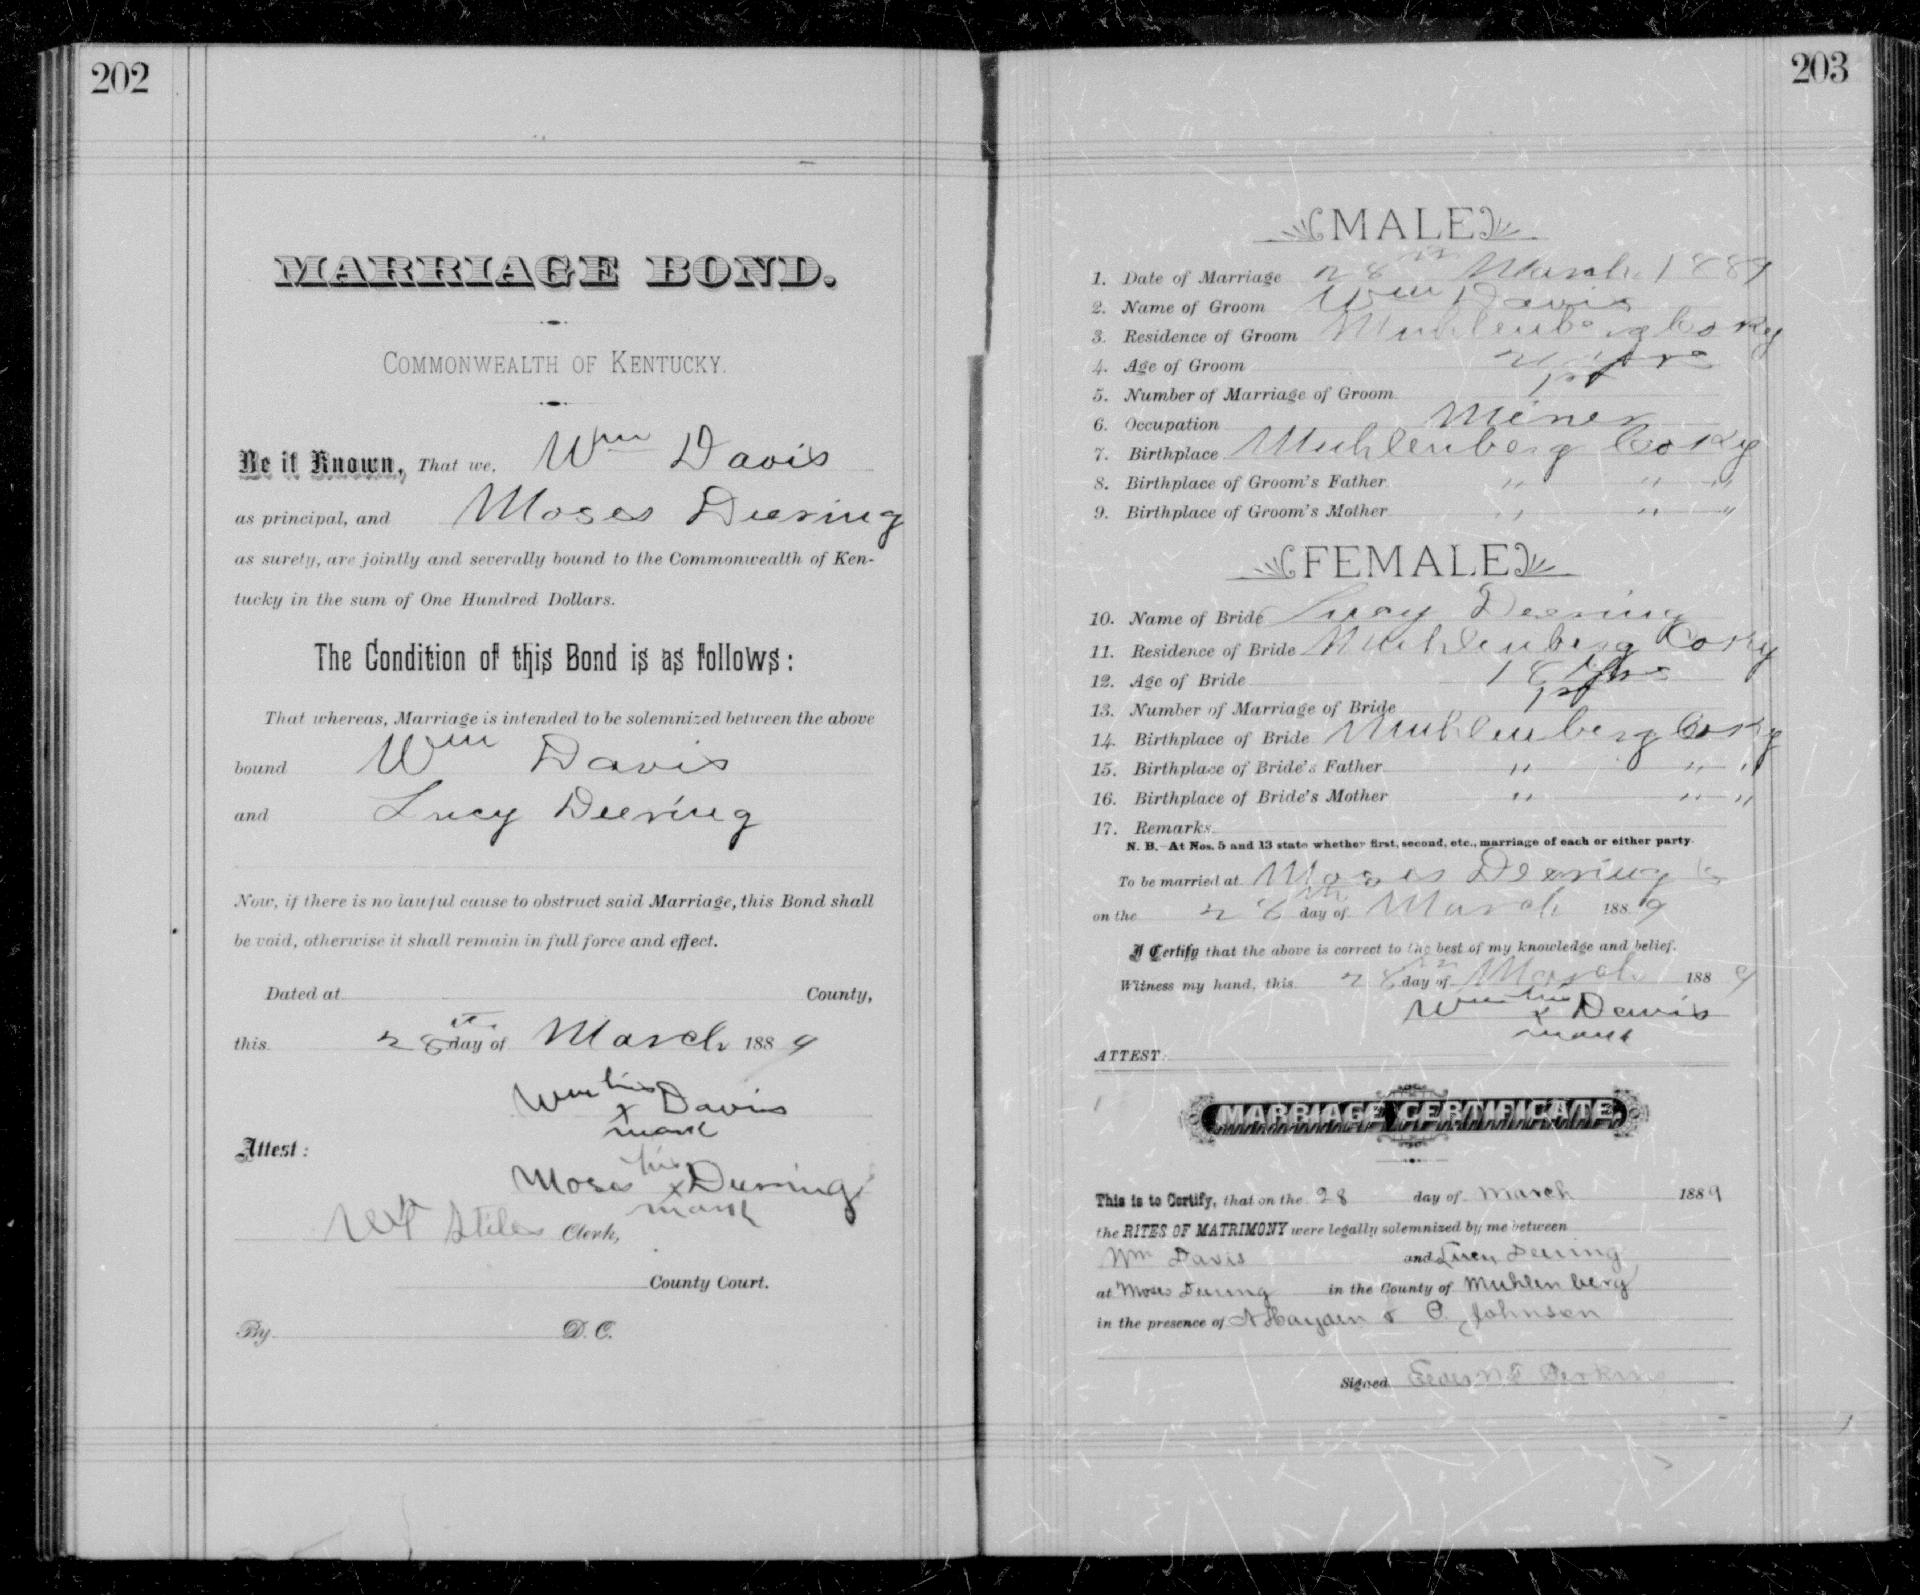 202
MARRIAGE BOND.
COMMONWEALTH OF KENTUCKY.
Be it Known, That we, Wm Davis
as principal, and Moses Deering
as surety, are jointly and severally bound to the Commonwealth of Ken-
tucky in the sum of One Hundred Dollars.
The Condition of this Bond is as follows:
That whereas, Marriage is intended to be solemnized between the above
bound Wm Davis
and Lucy Deering
Now, if there is no lawful cause to obstruct said Marriage, this Bond shall
be void, otherwise it shall remain in full force and effect.
Dated at County,
this 28th day of March 1889
Wm his x mark Davis
Attest:
Moses his x mark Deering
Stiles Clerk,
County Court.
By D. C.
203
MALE
1. Date of Marriage 28th March 1889
2. Name of Groom Wm Davis
3. Residence of Groom Muhlenberg Co Ky
4. Age of Groom yrs
5. Number of Marriage of Groom 1st
6. Occupation Miner
7. Birthplace Muhlenberg Co Ky
8. Birthplace of Groom's Father " " "
9. Birthplace of Groom's Mother " " "
FEMALE
10. Name of Bride Lucy Deering
11. Residence of Bride Muhlenberg Co Ky
12. Age of Bride 18 yrs
13. Number of Marriage of Bride 1st
14. Birthplace of Bride Muhlenberg Co Ky
15. Birthplace of Bride's Father " " "
16. Birthplace of Bride's Mother " " "
17. Remarks
N. B.—At Nos. 5 and 13 state whether first, second, etc., marriage of each or either party.
To be married at Moses Deering's
on the 28th day of March 1889
I Certify that the above is correct to the best of my knowledge and belief.
Witness my hand, this 28th day of March 1889
Wm his x mark Davis
ATTEST:
MARRIAGE CERTIFICATE.
This is to Certify, that on the 28 day of March 1889
the RITES OF MATRIMONY were legally solemnized by me between
Wm Davis and Lucy Deering
at Moses Deering in the County of Muhlenberg
in the presence of A Hayden & C. Johnson
Signed Perkins